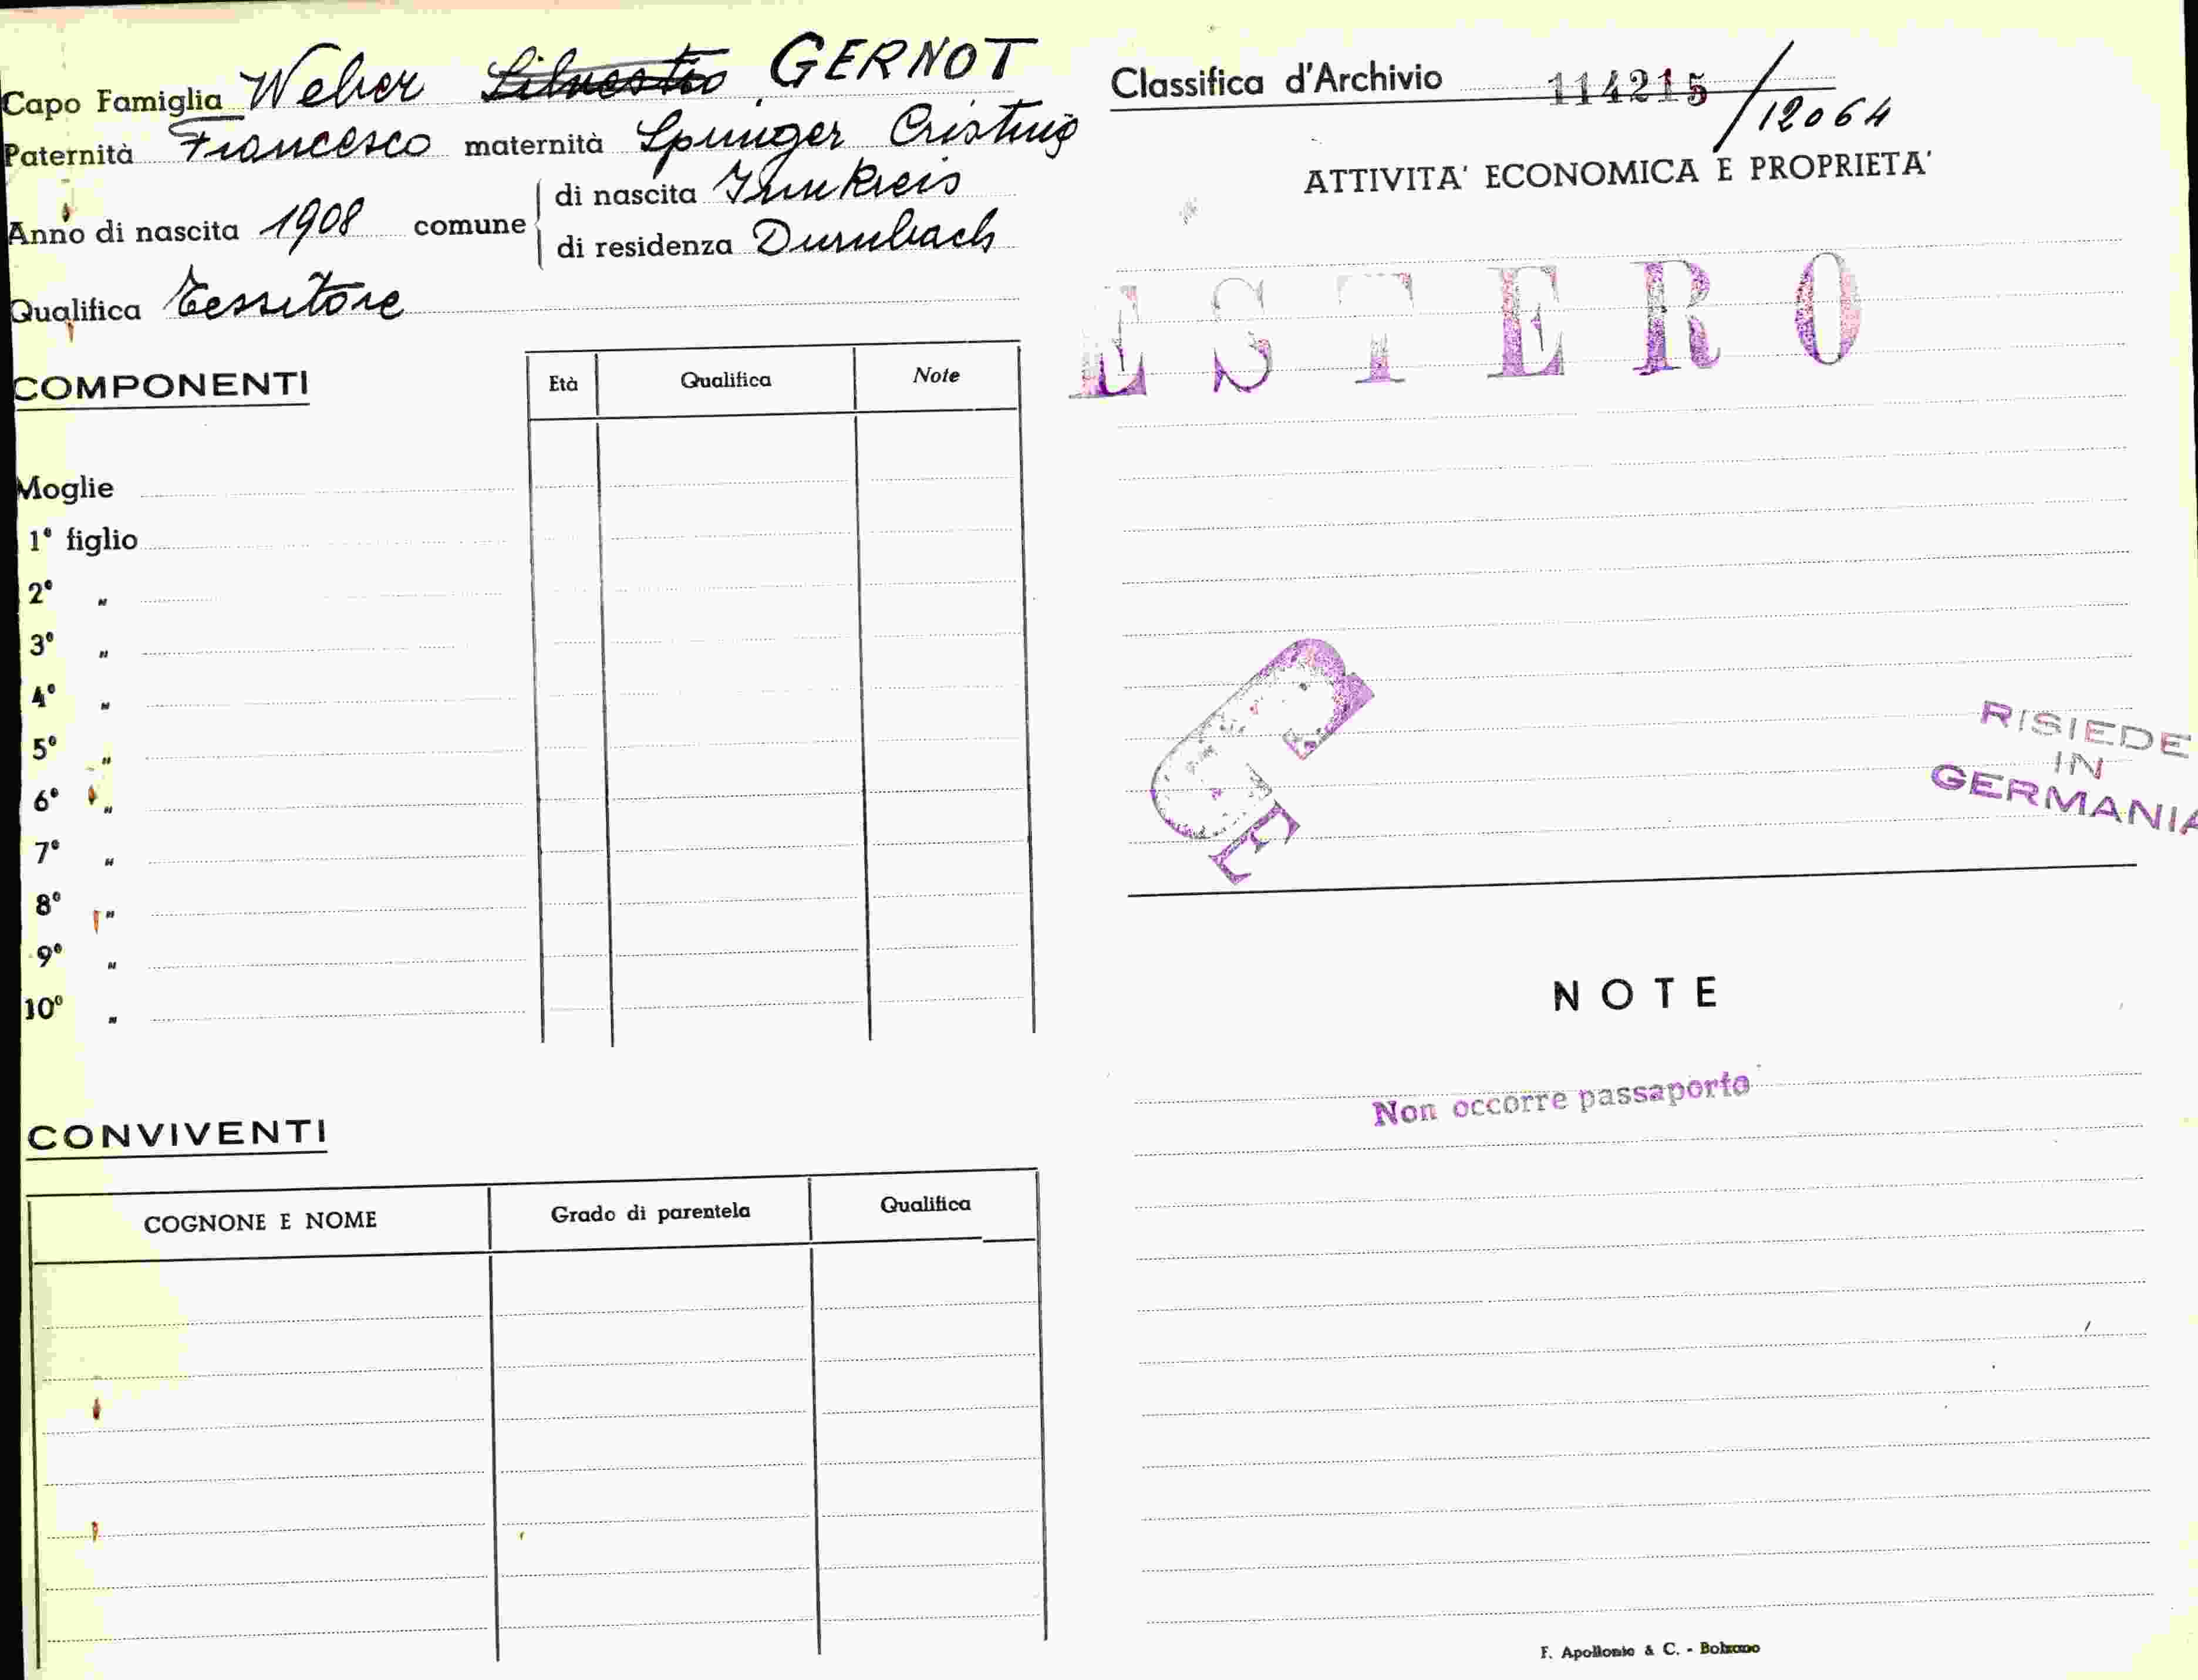 Capo Famiglia Weber Silvestro GERNOT
Paternità Francesco maternità Springer Cristina
Anno di nascita 1908 comune
di nascita Innkreis
di residenza Durnbach
Qualifica Tessitore
COMPONENTI
Età Qualifica Note
Moglie
1° figlio
2° "
3° "
4° "
5° "
6° "
7° "
8° "
9° "
10° "
CONVIVENTI
COGNONE E NOME Grado di parentela Qualifica
Classifica d'Archivio 114215/12064
ATTIVITA' ECONOMICA E PROPRIETA'
ESTERO
RISIEDE
IN
GERMANIA
NOTE
Non occorre passaporto
F. Apollonio & C. - Bolzano